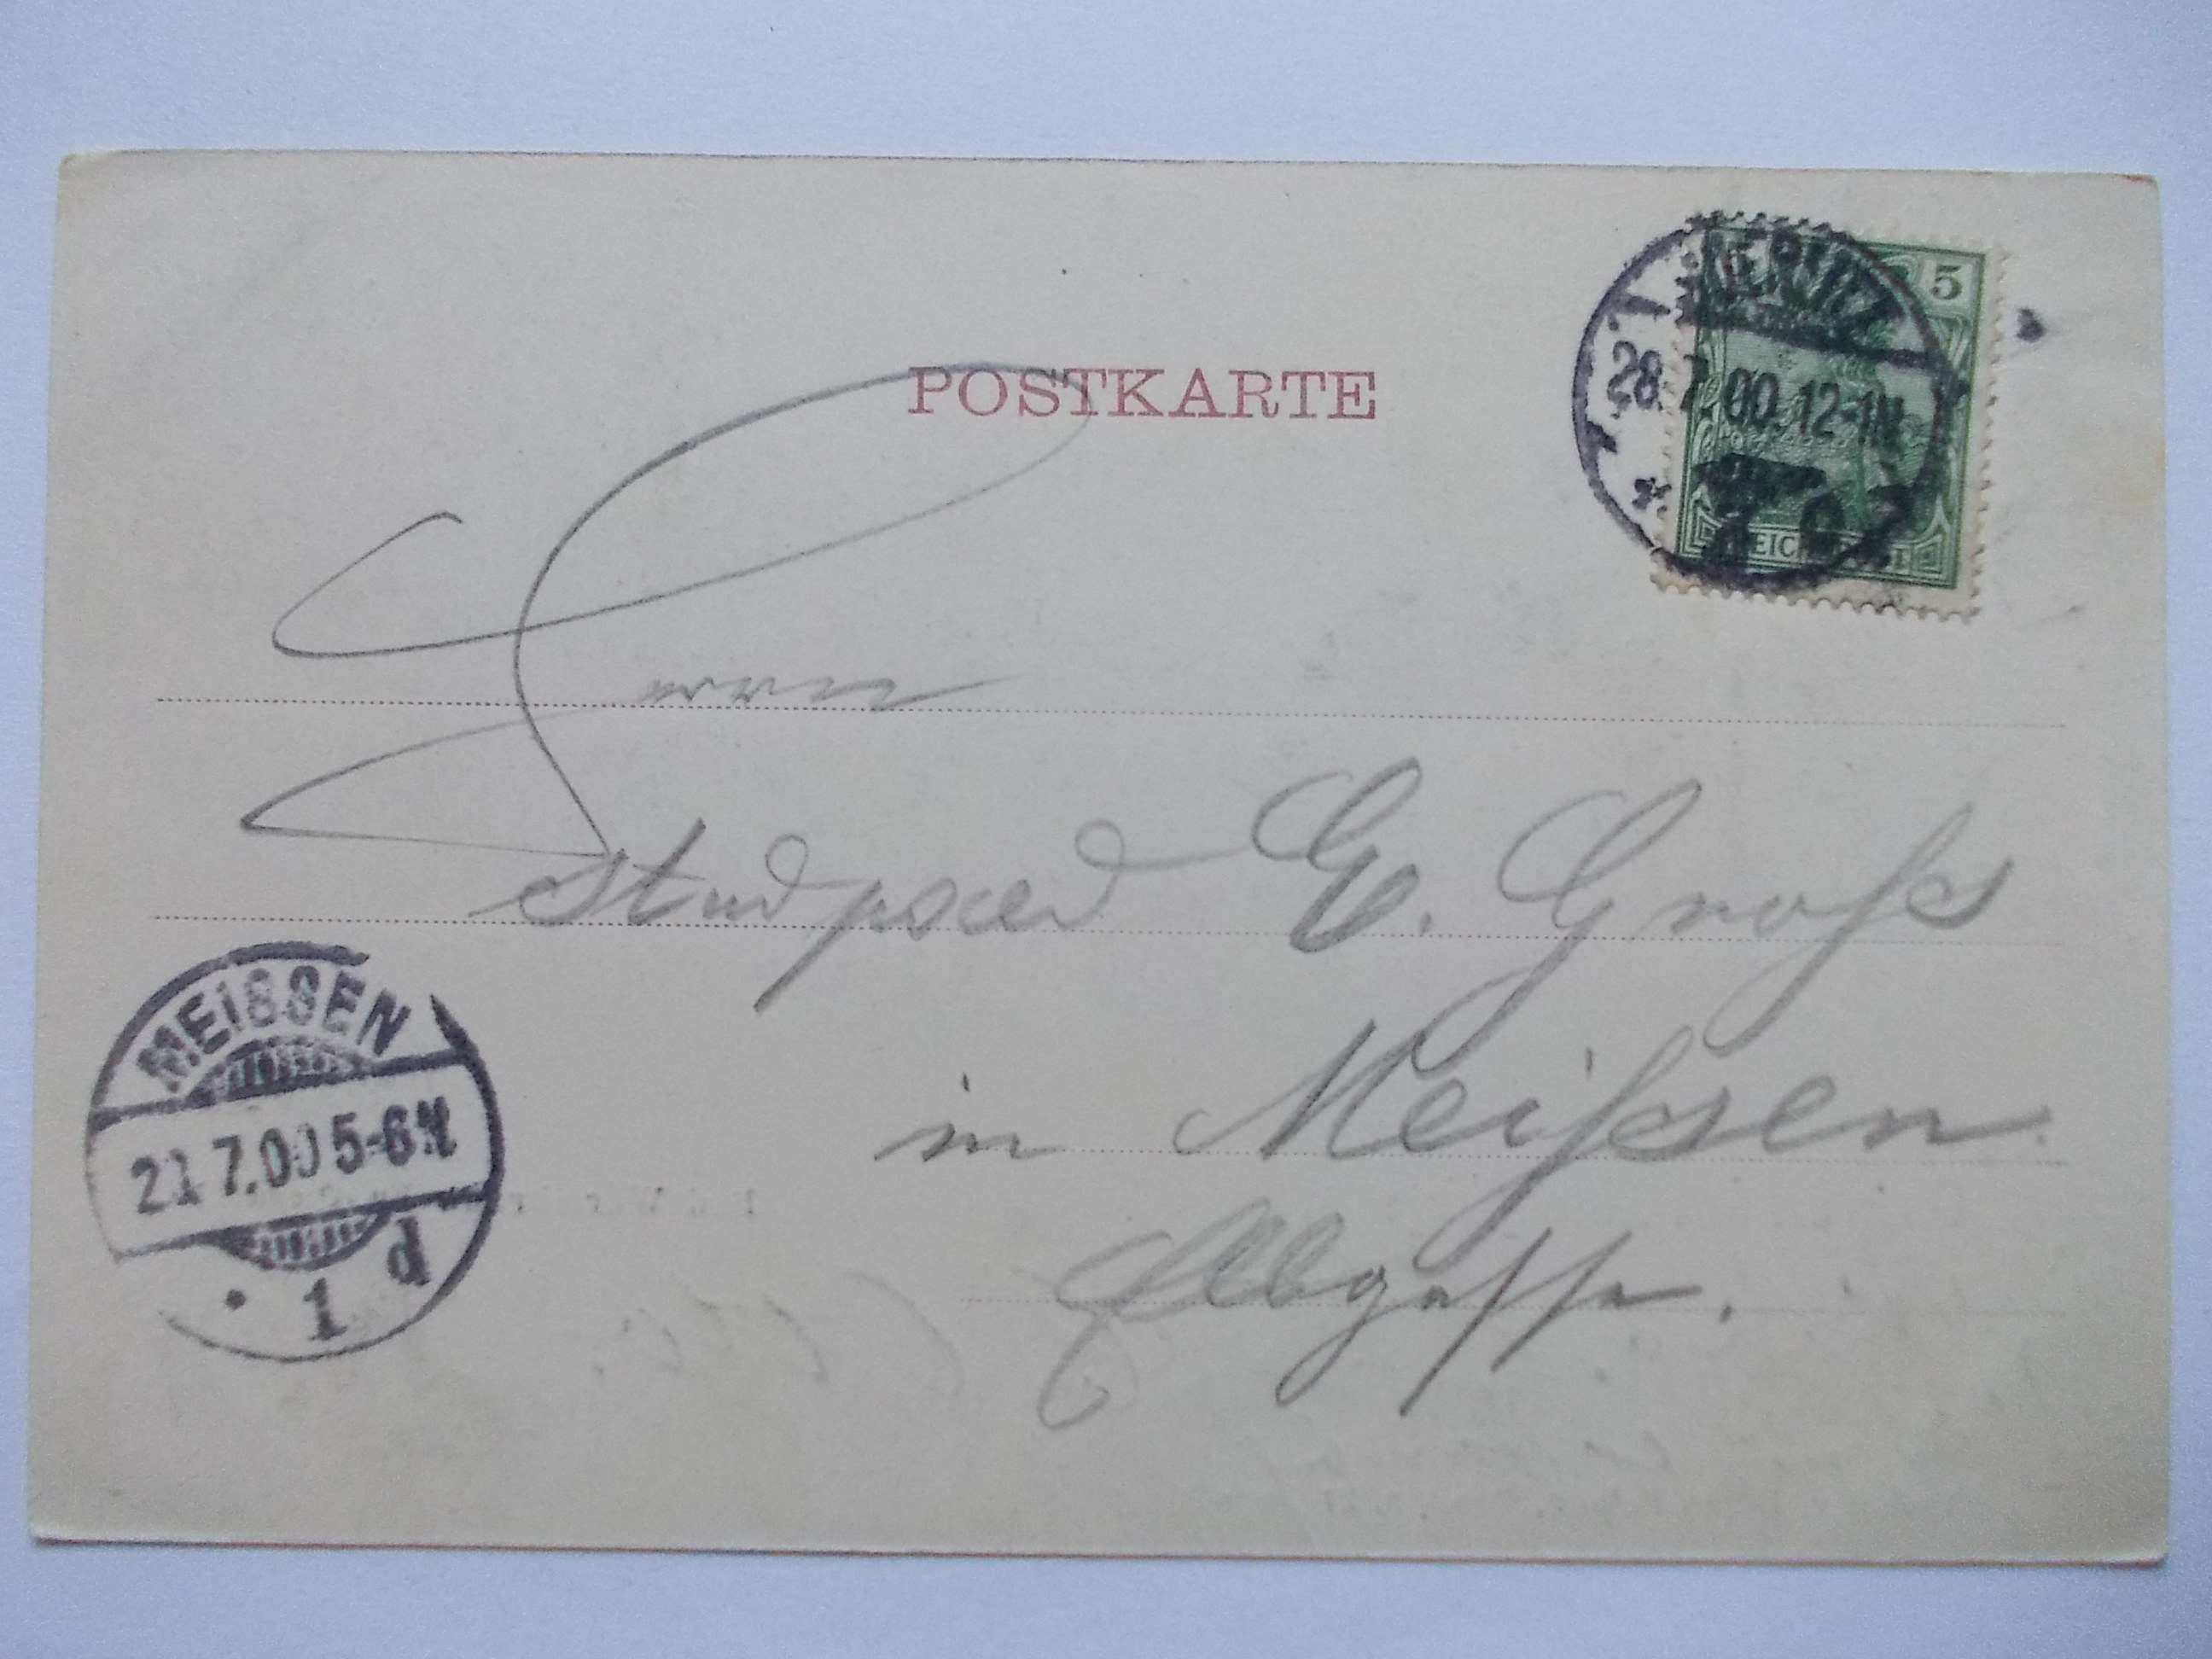 POSTKARTE
5
28.7.00.12-1N.
Herrn
stud paed E. Groß
in Meißen.
Elbgasse.
MEISSEN
7.00 5-6N
1 d